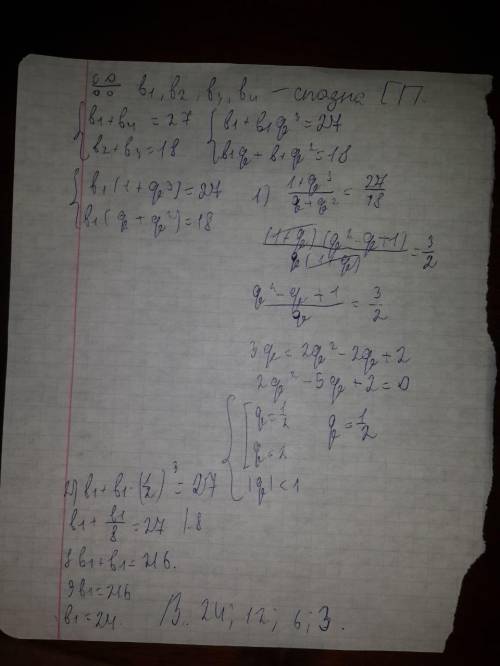 ∺ b₁, b₂, b₃, b₄ – спадна ГП.
{ b₁ + b₄ = 27 { b₁ + b₁q³ = 27
{ b₂ + b₃ = 18 { b₁q + b₁q² = 18
{ b₁(1 + q³) = 27
{ b₁(q + q²) = 18
1) (1 + q³)/(q + q²) = 27/18
(1 + q)(q² - q + 1)/q(1 + q) = 3/2
(q² - q + 1)/q = 3/2
3q = 2q² - 2q + 2
2q² - 5q + 2 = 0
{ [ q = 1/2 q = 1/2
{ [ q = 2
{ |q| < 1
2) b₁ + b₁·(1/2)³ = 27
b₁ + b₁/8 = 27 |·8
8b₁ + b₁ = 216.
9b₁ = 216
b₁ = 24.
В. 24; 12; 6; 3.